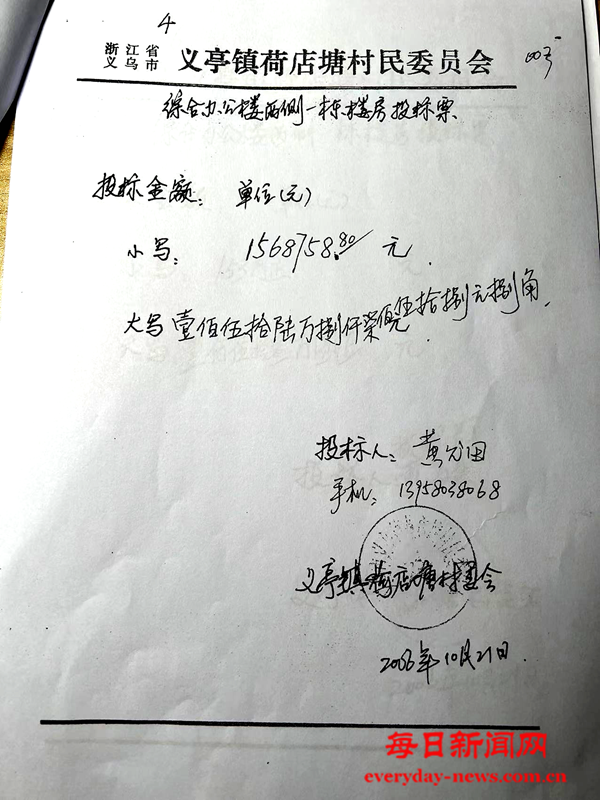 4
浙江省
义乌市
义亭镇荷店塘村民委员会
003号
综合办公楼西侧一栋楼房投标票
投标金额: 单位(元)
小写: 1568758.80 元
大写 壹佰伍拾陆万捌仟柒佰伍拾捌元捌角.
投标人: 黄允田
手机: 13958038068
义亭镇荷店塘村委会
2006年10月21日.
每日新闻网
everyday-news.com.cn